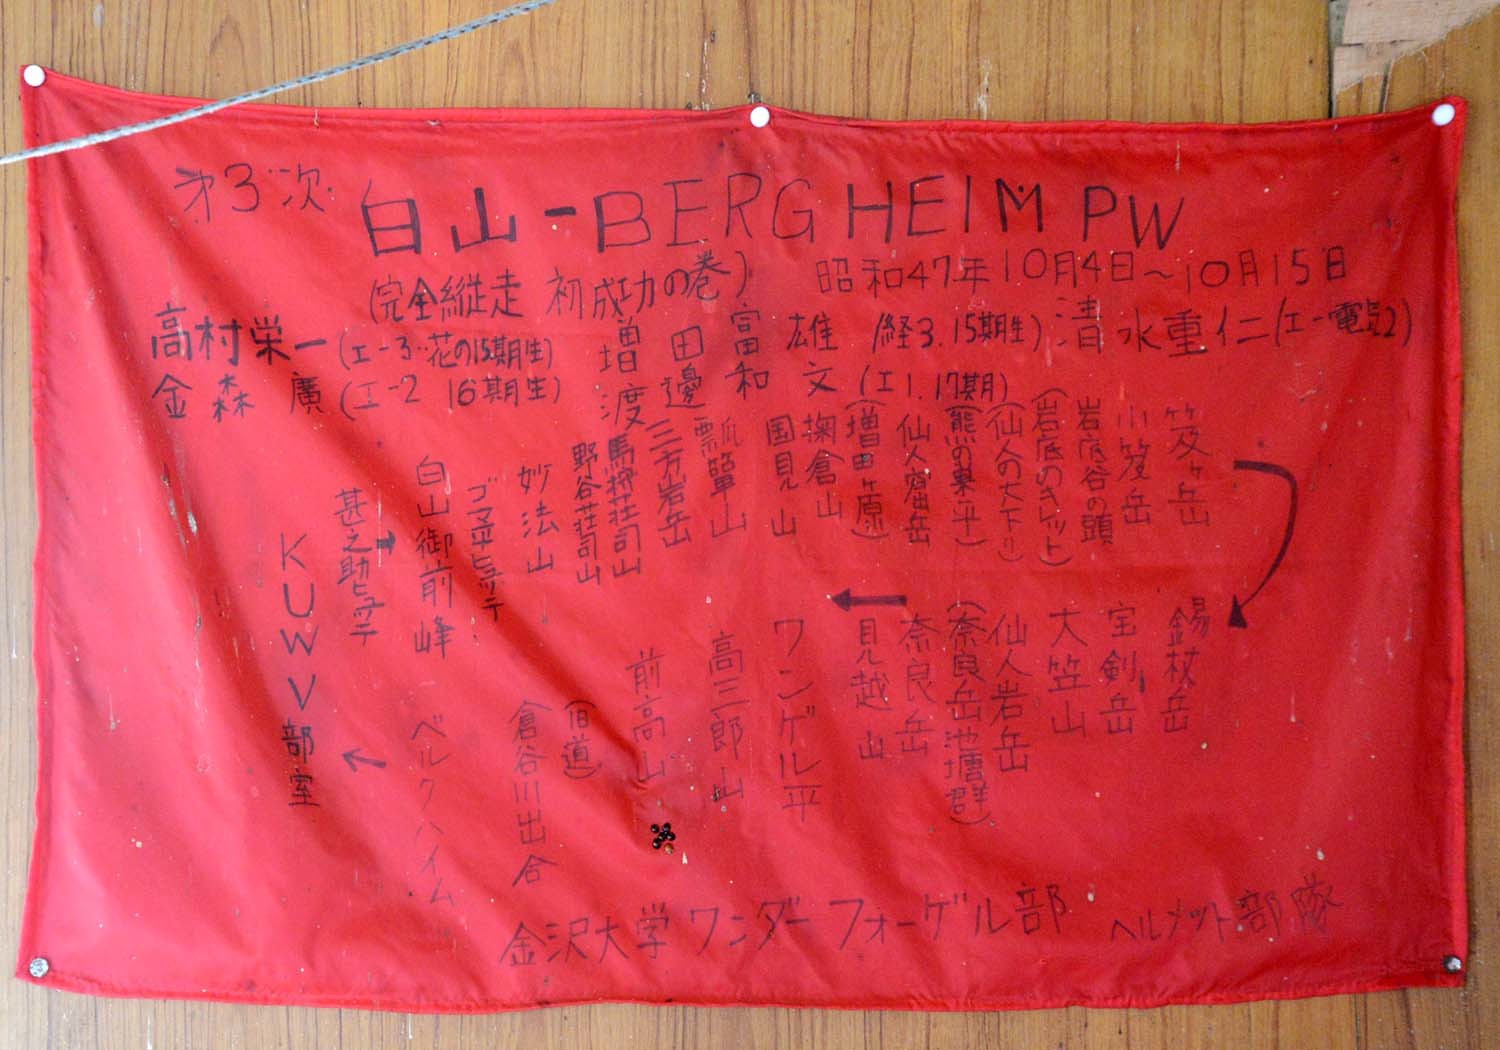 才3次 白山-BERGHEIM PW
(完全縦走 初成功の巻) 昭和47年10月4日～10月15日
高村栄一(エ-3…花の15期生) 増田富雄(経3.15期生) 清水重仁(エ-電気2)
金森廣(エ-2 16期生) 渡邊和文(エ1.17期)
甚之助ヒュッテ
→
白山御前峰
ゴマ平ヒュッテ
妙法山
野谷荘司山
馬狩荘司山
三方岩岳
瓢箪山
国見山
掬倉山
(増田ヶ原)
仙人窟岳
(熊の巣平)
(仙人の大下り)
(岩底のキレット)
岩底谷の頭
小笈岳
笈ヶ岳
錫杖岳
宝剣岳
大笠山
仙人岩岳
(奈良岳池塘群)
奈良岳
←
見越山
ワンゲル平
高三郎山
前高山
(旧道)
倉谷川出合
ベルクハイム
←
KUWV部室
金沢大学ワンダーフォーゲル部 ヘルメット部隊